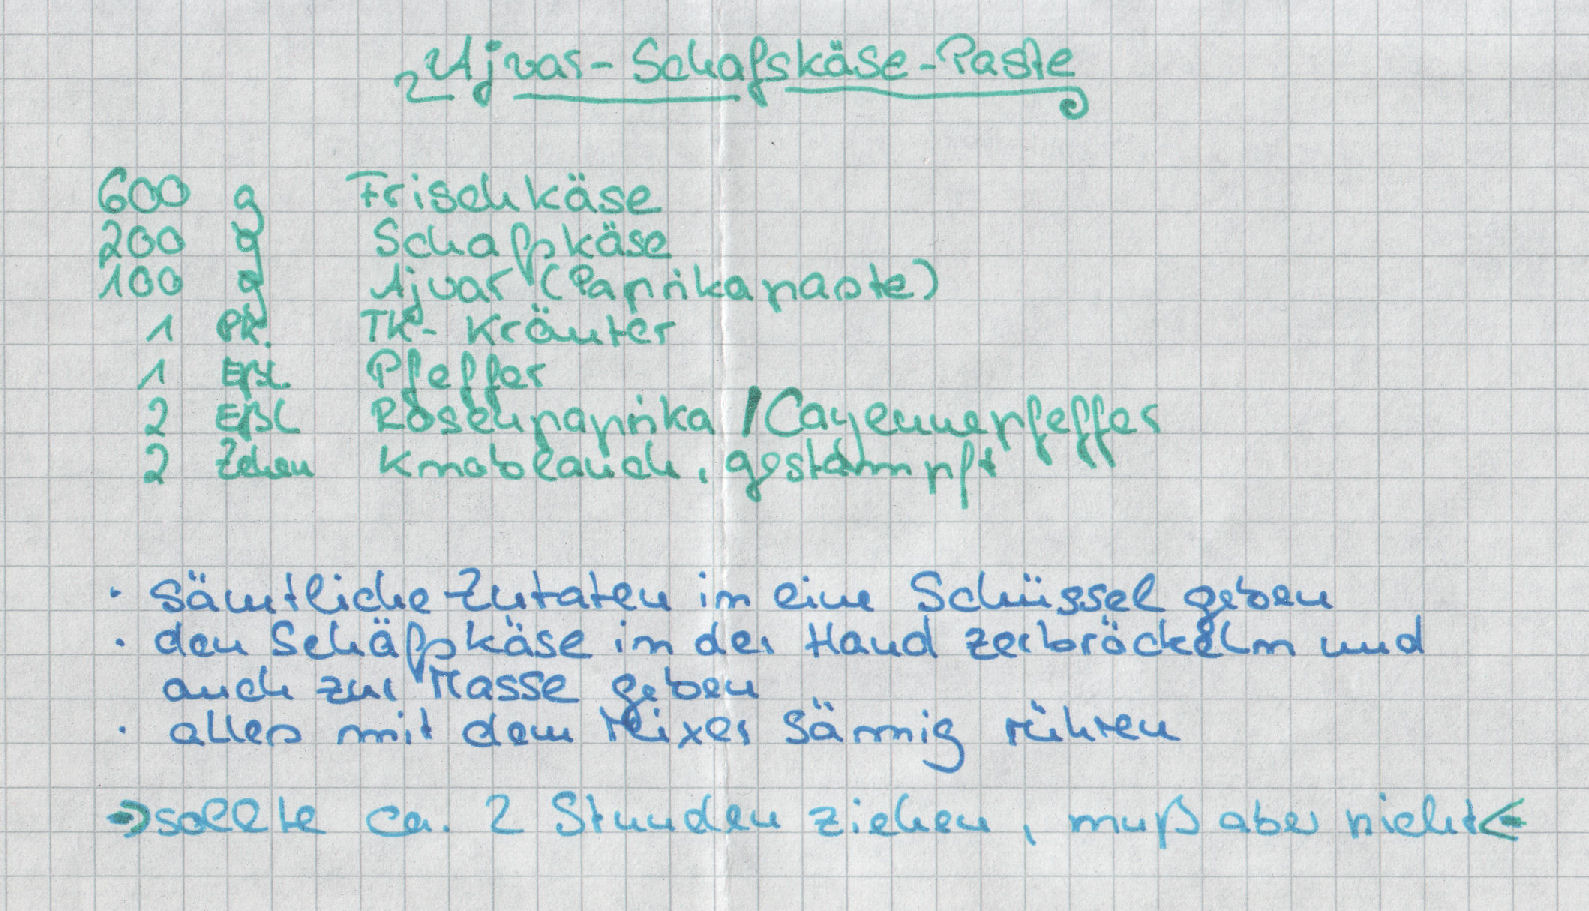 Ajvar-Schafskäse-Paste
600 g Frischkäse
200 g Schafskäse
100 g Ajvar (Paprikapaste)
1 Pk. TK-Kräuter
1 Eßl. Pfeffer
2 Eßl Rosenpaprika / Cayennepfeffer
2 Zehen Knoblauch, gestampft
· sämtliche Zutaten in eine Schüssel geben
· den Schäfskäse in der Hand zerbröckeln und
auch zur Masse geben
· alles mit dem Mixer sämig rühren
→ sollte ca. 2 Stunden ziehen, muß aber nicht ←